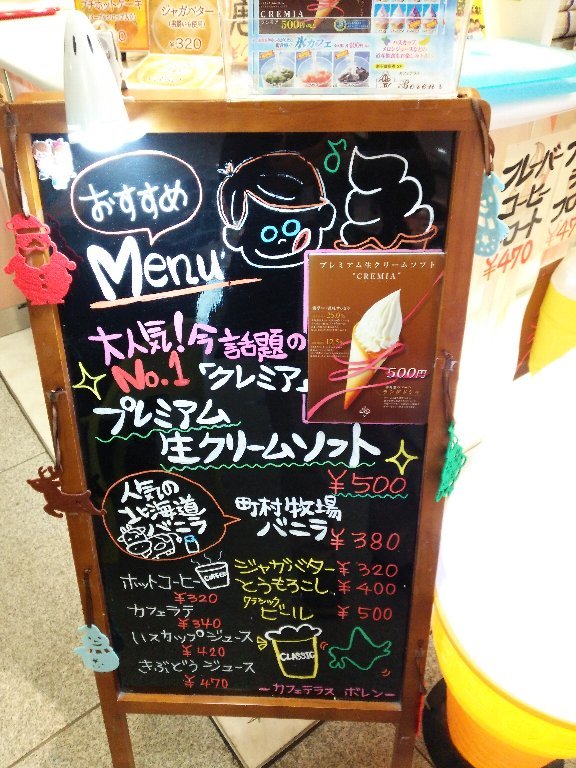 ジャガバター
¥320
CREMIA
500円
氷カフェ
おすすめ
Menu
プレミアム生クリームソフト
"CREMIA"
25.0%
12.5%
500円
大人気!今話題の
No.1「クレミア」
プレミアム
生クリームソフト
¥500
人気の
北海道
バニラ
町村牧場
バニラ
¥380
ジャガバター ¥320
とうもろこし ¥400
クラシック
ビール ¥500
CLASSIC
ホットコーヒー
COFFEE
¥320
カフェラテ
¥340
いスカップジュース
¥420
きぶどうジュース
¥470
ーカフェテラス ボレンー
フレーバー
コーヒー
¥470